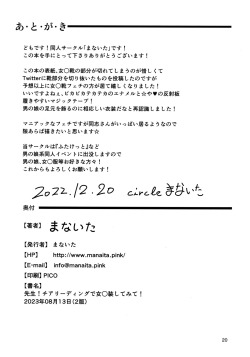 あ・と・が・き
どもです!同人サークル「まないた」です!
この本を手にとって下さりありがとうございます!
この本の表紙、女〇靴の部分が切れてしまうのが惜しくて
Twitterに靴部分を切り抜いたものを投稿したのですが
予想以上に女〇靴フェチの方が居て嬉しくなりました!
いいですよねぇ、ピカピカテカテカのエナメルと☆や♥の反射板
履きやすいマジックテープ!
男の娘の足元を飾るのに相応しい衣装だなと再認識しました!
マニアックなフェチですが同志さんがいっぱい居るようなので
隙あらば描きたいと思います☆
当サークルは『ふたけっと』など
男の娘系同人イベントに出没しますので
男の娘、女〇服等お好きな方々!
これからもよろしくお願いします!
2022.12.20 circleまないた
奥付
【著者】 まないた
【発行者】 まないた
【HP】 http://www.manaita.pink/
【E-mail】 info@manaita.pink
【印刷】PICO
【書名】
先生!チアリーディングで女〇装してみて!
2023年08月13日(2版)
20